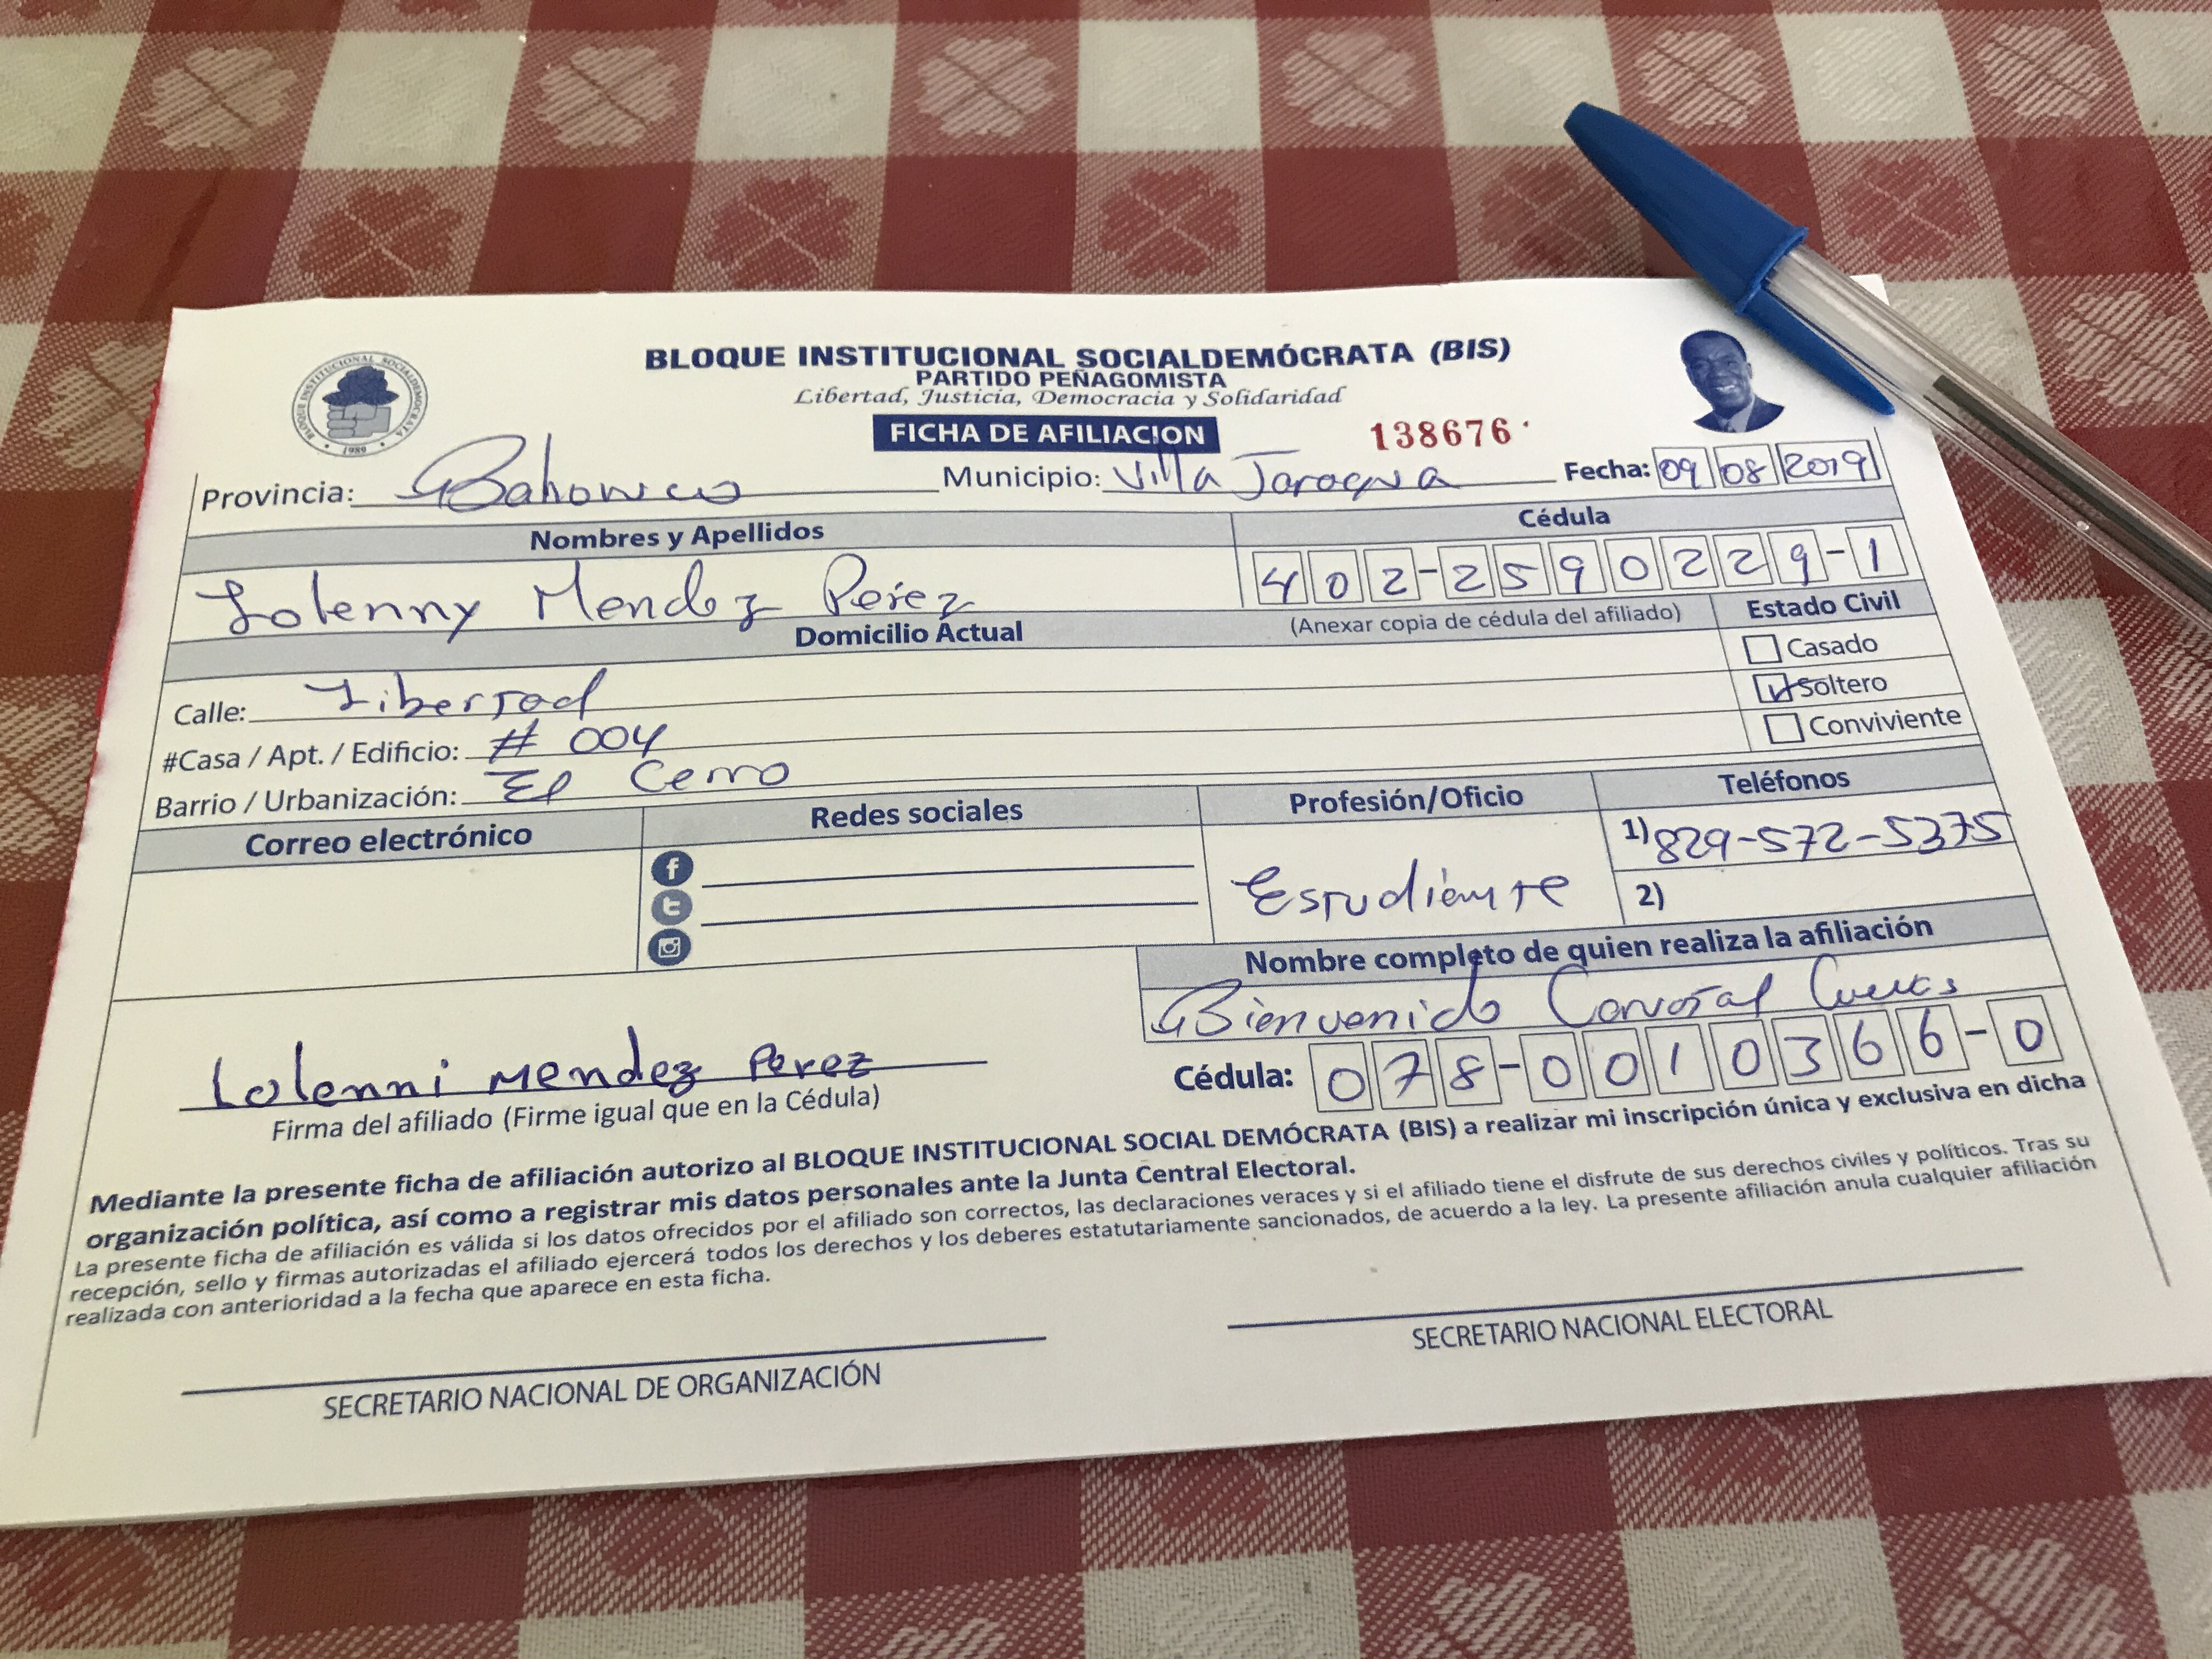 BLOQUE INSTITUCIONAL SOCIALDEMÓCRATA (BIS)
PARTIDO PEÑAGOMISTA
Libertad, Justicia, Democracia y Solidaridad
BLOQUE INSTITUCIONAL SOCIALDEMOCRATA
1989
FICHA DE AFILIACION
138676
Provincia: Bahoruco Municipio: Villa Jaragua Fecha: 09 08 2019
Nombres y Apellidos Cédula
Lolenny Mendez Perez 402-2590229-1
Domicilio Actual (Anexar copia de cédula del afiliado) Estado Civil
Casado
Calle: Libertad Soltero
#Casa / Apt. / Edificio: # 004 Conviviente
Barrio / Urbanización: El Cerro
Correo electrónico Redes sociales Profesión/Oficio Teléfonos
1) 829-572-5375
Estudiente
2)
Nombre completo de quien realiza la afiliación
Bienvenido Carvajal Cuevas
Lolenni Mendez Perez Cédula: 078-0010366-0
Firma del afiliado (Firme igual que en la Cédula)
Mediante la presente ficha de afiliación autorizo al BLOQUE INSTITUCIONAL SOCIAL DEMÓCRATA (BIS) a realizar mi inscripción única y exclusiva en dicha
organización política, así como a registrar mis datos personales ante la Junta Central Electoral.
La presente ficha de afiliación es válida si los datos ofrecidos por el afiliado son correctos, las declaraciones veraces y si el afiliado tiene el disfrute de sus derechos civiles y políticos. Tras su
recepción, sello y firmas autorizadas el afiliado ejercerá todos los derechos y los deberes estatutariamente sancionados, de acuerdo a la ley. La presente afiliación anula cualquier afiliación
realizada con anterioridad a la fecha que aparece en esta ficha.
SECRETARIO NACIONAL DE ORGANIZACIÓN SECRETARIO NACIONAL ELECTORAL